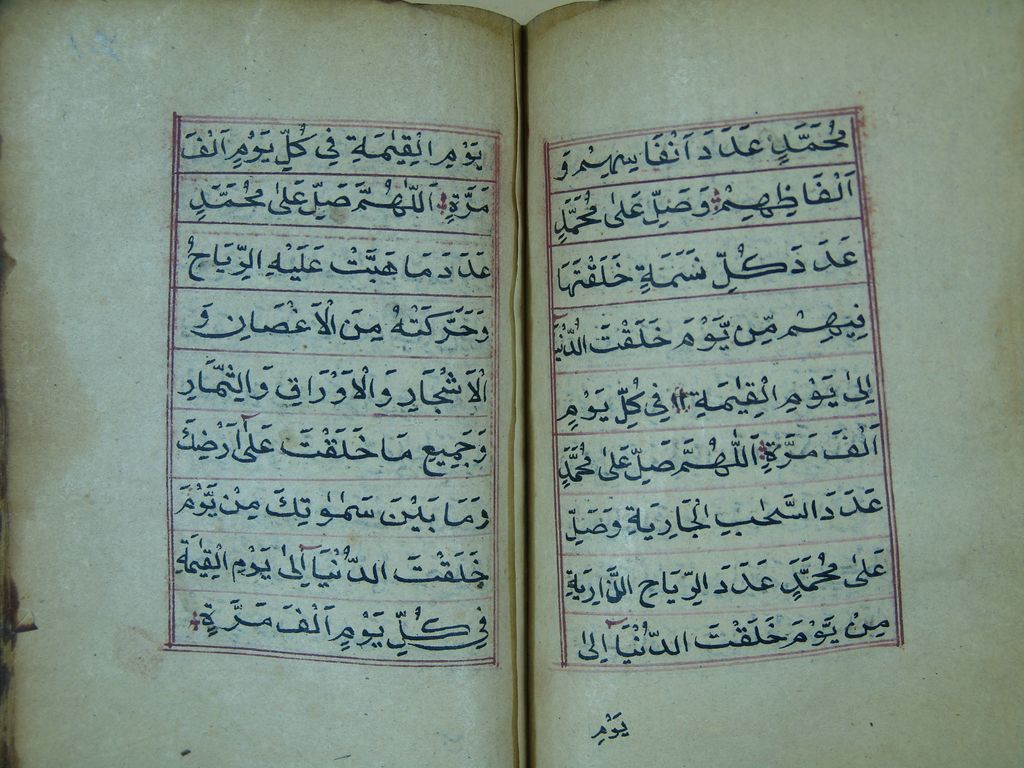 مُحَمَّدٍ عَدَدَ اَنْفَاسِهِمْ وَ
اَلْفَاظِهِمْ وَصَلِّ عَلٰى مُحَمَّدٍ
عَدَدَ كُلِّ نَسَمَةٍ خَلَقْتَهَا
فِيهِمْ مِّنْ يَّوْمَ خَلَقْتَ الدُّنْيَا
اِلٰى يَوْمِ الْقِيٰمَةِ فِى كُلِّ يَوْمٍ
اَلْفَ مَرَّةٍ اَللّٰهُمَّ صَلِّ عَلٰى مُحَمَّدٍ
عَدَدَ السَّحٰبِ الْجَارِيَةِ وَصَلِّ
عَلٰى مُحَمَّدٍ عَدَدَ الرِّيَاحِ الذَّارِيَةِ
مِنْ يَّوْمَ خَلَقْتَ الدُّنْيَآ اِلٰى
يَوْمِ
يَوْمِ الْقِيٰمَةِ فِى كُلِّ يَوْمٍ اَلْفَ
مَرَّةٍ اَللّٰهُمَّ صَلِّ عَلٰى مُحَمَّدٍ
عَدَدَ مَا هَبَّتْ عَلَيْهِ الرِّيَاحُ
وَحَرَّكَتْهُ مِنَ الْاَغْصَانِ وَ
الْاَشْجَارِ وَالْاَوْرَاقِ وَالثِّمَارِ
وَجَمِيعِ مَا خَلَقْتَ عَلٰٓى اَرْضِكَ
وَمَا بَيْنَ سَمٰوٰتِكَ مِنْ يَّوْمَ
خَلَقْتَ الدُّنْيَآ اِلٰى يَوْمِ الْقِيٰمَةِ
فِى كُلِّ يَوْمٍ اَلْفَ مَرَّةٍ